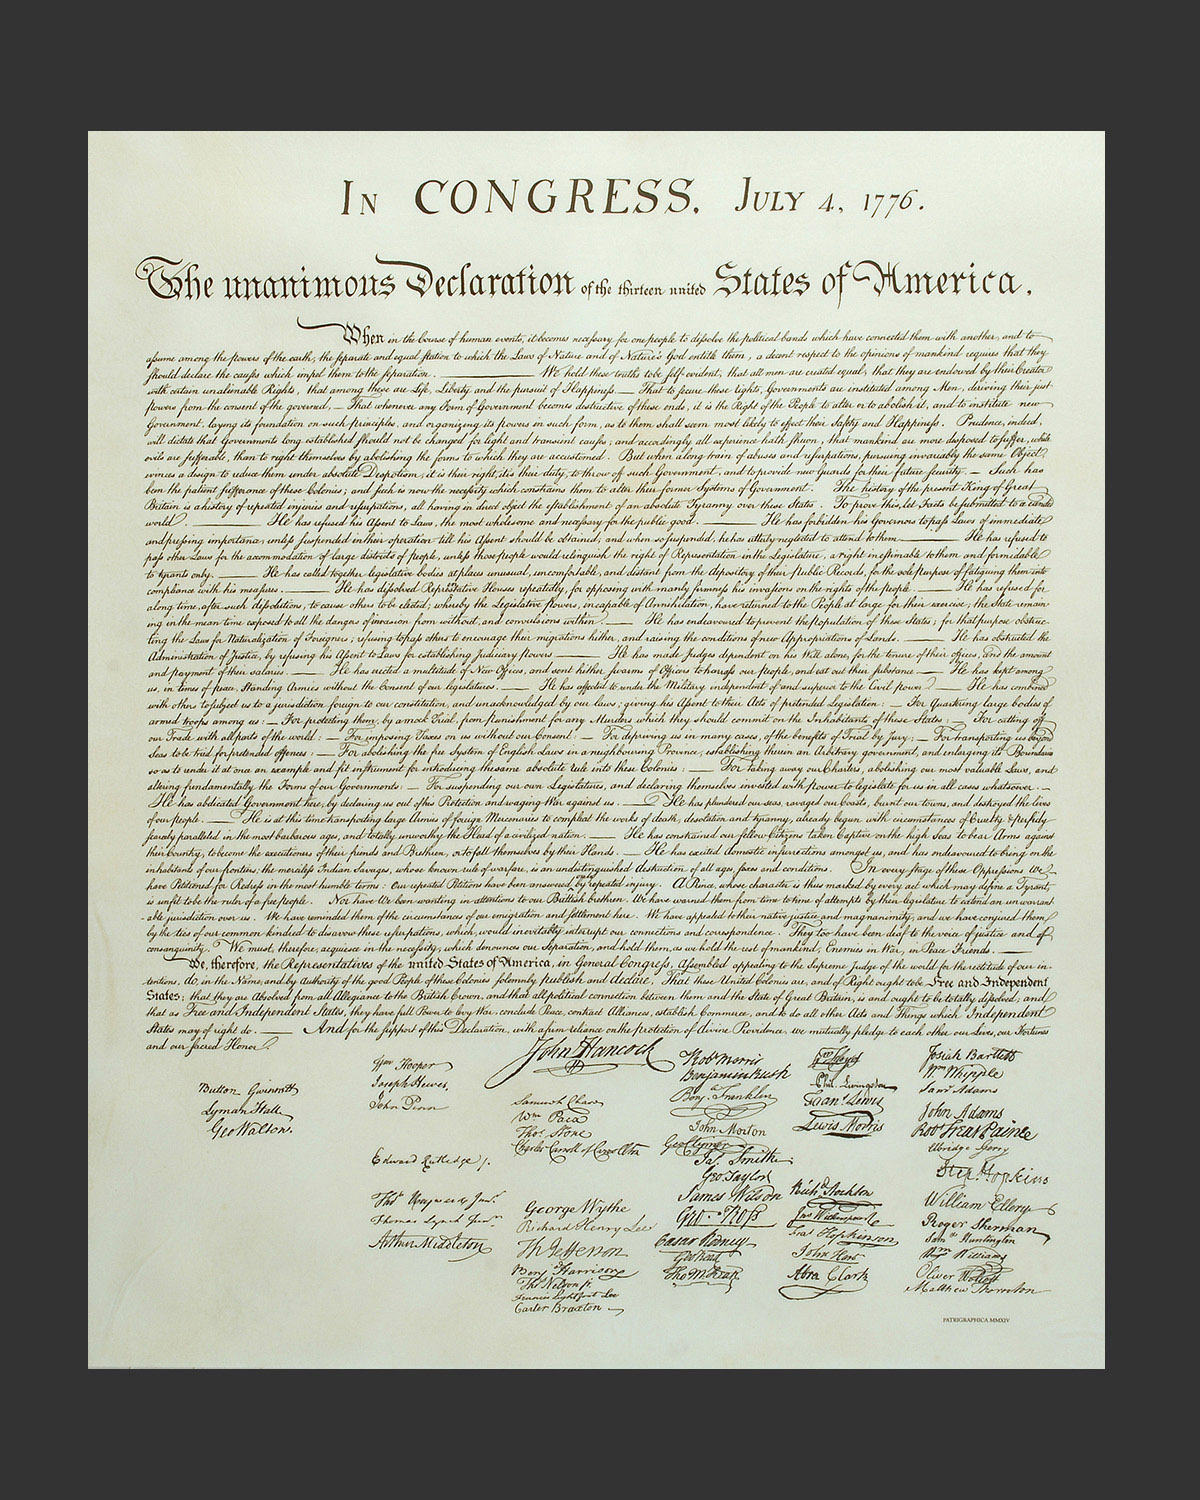 In CONGRESS, July 4, 1776.
The unanimous Declaration of the thirteen united States of America,
When in the Course of human events, it becomes necessary for one people to dissolve the political bands which have connected them with another, and to
assume among the powers of the earth, the separate and equal station to which the Laws of Nature and of Nature's God entitle them, a decent respect to the opinions of mankind requires that they
should declare the causes which impel them to the separation. We hold these truths to be self-evident, that all men are created equal, that they are endowed by their Creator
with certain unalienable Rights, that among these are Life, Liberty and the pursuit of Happiness. — That to secure these rights, Governments are instituted among Men, deriving their just
powers from the consent of the governed, — That whenever any Form of Government becomes destructive of these ends, it is the Right of the People to alter or to abolish it, and to institute new
Government, laying its foundation on such principles, and organizing its powers in such form, as to them shall seem most likely to effect their Safety and Happiness. Prudence, indeed,
will dictate that Governments long established should not be changed for light and transient causes; and accordingly all experience hath shewn, that mankind are more disposed to suffer, while
evils are sufferable, than to right themselves by abolishing the forms to which they are accustomed. But when a long train of abuses and usurpations, pursuing invariably the same Object
evinces a design to reduce them under absolute Despotism, it is their right, it is their duty, to throw off such Government, and to provide new Guards for their future security. — Such has
been the patient sufferance of these Colonies; and such is now the necessity which constrains them to alter their former Systems of Government. The history of the present King of Great
Britain is a history of repeated injuries and usurpations, all having in direct object the establishment of an absolute Tyranny over these States. To prove this, let Facts be submitted to a candid
world. He has refused his Assent to Laws, the most wholesome and necessary for the public good. He has forbidden his Governors to pass Laws of immediate
and pressing importance, unless suspended in their operation till his Assent should be obtained; and when so suspended, he has utterly neglected to attend to them. He has refused to
pass other Laws for the accommodation of large districts of people, unless those people would relinquish the right of Representation in the Legislature, a right inestimable to them and formidable
to tyrants only. He has called together legislative bodies at places unusual, uncomfortable, and distant from the depository of their Public Records, for the sole purpose of fatiguing them into
compliance with his measures. He has dissolved Representative Houses repeatedly, for opposing with manly firmness his invasions on the rights of the people. He has refused for
a long time, after such dissolutions, to cause others to be elected; whereby the Legislative powers, incapable of Annihilation, have returned to the People at large for their exercise; the State remain-
ing in the mean time exposed to all the dangers of invasion from without, and convulsions within. He has endeavoured to prevent the population of these States; for that purpose obstruc-
ting the Laws for Naturalization of Foreigners; refusing to pass others to encourage their migrations hither, and raising the conditions of new Appropriations of Lands. He has obstructed the
Administration of Justice, by refusing his Assent to Laws for establishing Judiciary powers. He has made Judges dependent on his Will alone, for the tenure of their offices, and the amount
and payment of their salaries. He has erected a multitude of New Offices, and sent hither swarms of Officers to harrass our people, and eat out their substance. He has kept among
us, in times of peace, Standing Armies without the Consent of our legislatures. He has affected to render the Military independent of and superior to the Civil power. He has combined
with others to subject us to a jurisdiction foreign to our constitution, and unacknowledged by our laws; giving his Assent to their Acts of pretended Legislation: — For Quartering large bodies of
armed troops among us: — For protecting them, by a mock Trial, from punishment for any Murders which they should commit on the Inhabitants of these States: — For cutting off
our Trade with all parts of the world: — For imposing Taxes on us without our Consent: — For depriving us in many cases, of the benefits of Trial by Jury: — For transporting us beyond
Seas to be tried for pretended offences: — For abolishing the free System of English Laws in a neighbouring Province, establishing therein an Arbitrary government, and enlarging its Boundaries
so as to render it at once an example and fit instrument for introducing the same absolute rule into these Colonies: — For taking away our Charters, abolishing our most valuable Laws, and
altering fundamentally the Forms of our Governments: — For suspending our own Legislatures, and declaring themselves invested with power to legislate for us in all cases whatsoever. —
He has abdicated Government here, by declaring us out of his Protection and waging War against us. He has plundered our seas, ravaged our Coasts, burnt our towns, and destroyed the lives
of our people. He is at this time transporting large Armies of foreign Mercenaries to compleat the works of death, desolation and tyranny, already begun with circumstances of Cruelty & perfidy
scarcely paralleled in the most barbarous ages, and totally unworthy the Head of a civilized nation. He has constrained our fellow Citizens taken Captive on the high Seas to bear Arms against
their Country, to become the executioners of their friends and Brethren, or to fall themselves by their Hands. He has excited domestic insurrections amongst us, and has endeavoured to bring on the
inhabitants of our frontiers, the merciless Indian Savages, whose known rule of warfare, is an undistinguished destruction of all ages, sexes and conditions. In every stage of these Oppressions We
have Petitioned for Redress in the most humble terms: Our repeated Petitions have been answered only by repeated injury. A Prince, whose character is thus marked by every act which may define a Tyrant,
is unfit to be the ruler of a free people. Nor have We been wanting in attentions to our Brittish brethren. We have warned them from time to time of attempts by their legislature to extend an unwarrant-
able jurisdiction over us. We have reminded them of the circumstances of our emigration and settlement here. We have appealed to their native justice and magnanimity, and we have conjured them
by the ties of our common kindred to disavow these usurpations, which, would inevitably interrupt our connections and correspondence. They too have been deaf to the voice of justice and of
consanguinity. We must, therefore, acquiesce in the necessity, which denounces our Separation, and hold them, as we hold the rest of mankind, Enemies in War, in Peace Friends.
We, therefore, the Representatives of the united States of America, in General Congress, Assembled, appealing to the Supreme Judge of the world for the rectitude of our in-
tentions, do, in the Name, and by Authority of the good People of these Colonies, solemnly publish and declare, That these United Colonies are, and of Right ought to be Free and Independent
States; that they are Absolved from all Allegiance to the British Crown, and that all political connection between them and the State of Great Britain, is and ought to be totally dissolved; and
that as Free and Independent States, they have full Power to levy War, conclude Peace, contract Alliances, establish Commerce, and to do all other Acts and Things which Independent
States may of right do. And for the support of this Declaration, with a firm reliance on the protection of divine Providence, we mutually pledge to each other our Lives, our Fortunes
and our sacred Honor.
Button Gwinnett
Lyman Hall
Geo Walton.
Wm Hooper
Joseph Hewes,
John Penn
Edward Rutledge /.
Thos Heyward Junr.
Thomas Lynch Junr.
Arthur Middleton
John Hancock
Samuel Chase
Wm Paca
Thos Stone
Charles Carroll of Carrollton
George Wythe
Richard Henry Lee
Th Jefferson
Benj Harrison
Thos Nelson jr
Francis Lightfoot Lee
Carter Braxton
Robt Morris
Benjamin Rush
Benj. Franklin
John Morton
Geo Clymer
Jas. Smith
Geo Taylor
James Wilson
Geo. Ross
Caesar Rodney
Geo Read
Tho M:Kean
Wm Floyd
Phil. Livingston
Frans. Lewis
Lewis Morris
Richd. Stockton
Jno Witherspoon
Fras. Hopkinson
John Hart
Abra Clark
Josiah Bartlett
Wm Whipple
Saml Adams
John Adams
Robt Treat Paine
Elbridge Gerry
Step. Hopkins
William Ellery
Roger Sherman
Saml Huntington
Wm Williams
Oliver Wolcott
Matthew Thornton
PATRIGRAPHICA MMXIV